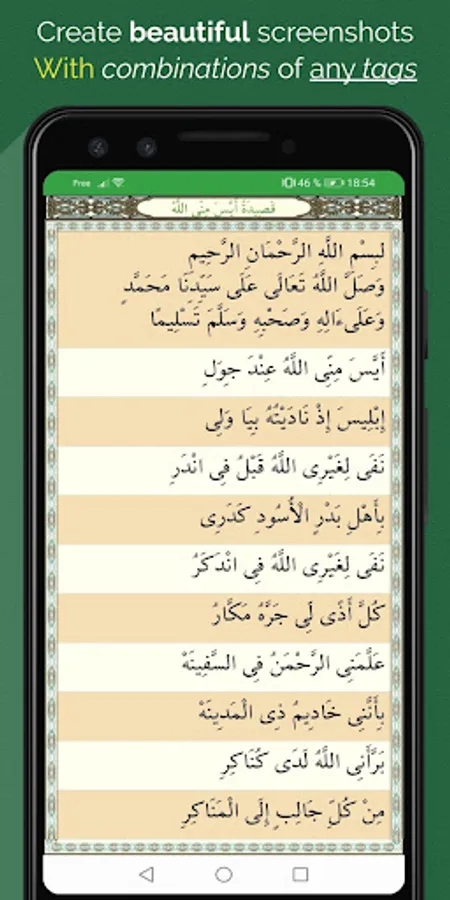 Create beautiful screenshots
With combinations of any tags
Free 46 % 18:54
قَصِيدَةُ أَيَّسَ مِنِّى اللَّهُ
لبِسْمِ اللَّهِ الرَّحْمَانِ الرَّحِيمِ
وَصَلَّ اللَّهُ تَعَالَى عَلَى سَيِّدِنَا مَحَمَّدٍ
وَعَلَىءَالِهِ وَصَحْبِهِ وَسَلَّمَ تَسْلِيمًا
أَيَّسَ مِنِّى اللَّهُ عِنْدَ جِوَلِ
إِبْلِيسَ إِذْ نَادَيْتُهُ بِيَا وَلِى
نَفَى لِغَيْرِى اللَّهُ قَبْلُ فِى انْدَرِ
بِأَهْلِ بَدْرٍ الْأُسُودِ كَدَرِى
نَفَى لِغَيْرِى اللَّهُ فِى انْدَكَرُ
كُلَّ أَذًى لِى جَرَّهُ مَكَّارُ
عَلَّمَنِى الرَّحْمَنُ فِى السَّفِينَهْ
بِأَنَّنِى خَادِيمُ ذِى الْمَدِينَهْ
بَرَّأَنِى اللَّهُ لَدَى كُنَاكِرِ
مِنْ كُلِّ جَالِبٍ إِلَى الْمَنَاكِرِ